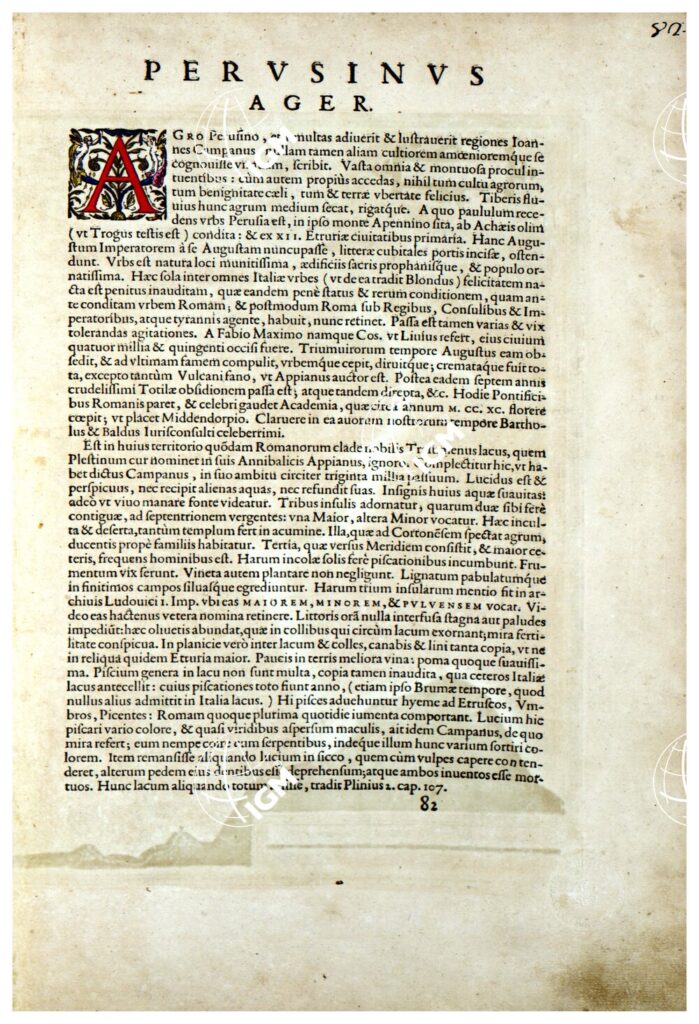 82.
PERVSINVS
AGER.
AGRO Perusino, multas adiuerit & lustrauerit regiones Ioan-
nes Campanus nullam tamen aliam cultiorem amœnioremque se
cognouisse scribit. Vasta omnia & montuosa procul in-
tuentibus: cùm autem propiùs accedas, nihil tum cultu agrorum,
tum benignitate cæli, tum & terræ vbertate felicius. Tiberis flu-
uius hunc agrum medium secat, rigatque. A quo paululum rece-
dens vrbs Perusia est, in ipso monte Apennino sita, ab Achæis olim
(vt Trogus testis est) condita: & ex XII. Etruriæ ciuitatibus primaria. Hanc Augu-
stum Imperatorem à se Augustam nuncupasse, litteræ cubitales portis incisæ, osten-
dunt. Vrbs est natura loci munitissima, ædificiis sacris prophanisque, & populo or-
natissima. Hæc sola inter omnes Italiæ vrbes (vt de ea tradit Blondus) felicitatem na-
cta est penitus inauditam, quæ eandem penè status & rerum conditionem, quam an-
te conditam vrbem Romam; & postmodum Roma sub Regibus, Consulibus & Im-
peratoribus, atque tyrannis agente, habuit, nunc retinet. Passa est tamen varias & vix
tolerandas agitationes. A Fabio Maximo namque Cos. vt Liuius refert, eius ciuium
quatuor millia & quingenti occisi fuere. Triumuirorum tempore Augustus eam ob-
sedit, & ad vltimam famem compulit, vrbemque cepit, diruitque; crematáque fuit to-
ta, excepto tantùm Vulcani fano, vt Appianus auctor est. Postea eadem septem annis
crudelissimi Totilæ obsidionem passa est; atque tandem direpta, &c. Hodie Pontifici-
bus Romanis paret, & celebri gaudet Academia, quæ circa annum M. CC. XC. florere
cœpit; vt placet Middendorpio. Claruere in ea auorum nostrorum tempore Bartho-
lus & Baldus Iurisconsulti celeberrimi.
Est in huius territorio quôdam Romanorum clade nobilis Trasimenus lacus, quem
Plestinum cur nominet in suis Annibalicis Appianus, ignoro. Complectitur hic, vt ha-
bet dictus Campanus, in suo ambitu circiter triginta millia passuum. Lucidus est &
perspicuus, nec recipit alienas aquas, nec refundit suas. Insignis huius aquæ suauitas:
adeò vt viuo manare fonte videatur. Tribus insulis adornatur, quarum duæ sibi ferè
contiguæ, ad septentrionem vergentes: vna Maior, altera Minor vocatur. Hæc incul-
ta & deserta, tantùm templum fert in acumine. Illa, quæ ad Cortonēsem spectat agrum,
ducentis propè familiis habitatur. Tertia, quæ versus Meridiem consistit, & maior ce-
teris, frequens hominibus est. Harum incolæ solis ferè piscationibus incumbunt. Fru-
mentum vix serunt. Vineta autem plantare non negligunt. Lignatum pabulatumque
in finitimos campos siluasque egrediuntur. Harum trium insularum mentio fit in ar-
chiuis Ludouici I. Imp. vbi eas MAIOREM, MINOREM, & PVLVENSEM vocat. Vi-
deo eas hactenus vetera nomina retinere. Littoris orā nulla interfusa stagna aut paludes
impediūt: hæc oliuetis abundat, quæ in collibus qui circùm lacum exornant; mira ferti-
litate conspicua. In planicie verò inter lacum & colles, canabis & lini tanta copia, vt ne
in reliqua quidem Etruria maior. Paucis in terris meliora vina: poma quoque suauissi-
ma. Piscium genera in lacu non sunt multa, copia tamen inaudita, qua ceteros Italiæ
lacus antecellit: cuius piscationes toto fiunt anno, (etiam ipso Brumæ tempore, quod
nullus alius admittit in Italia lacus.) Hi pisces aduehuntur hyeme ad Etruscos, Vm-
bros, Picentes: Romam quoque plurima quotidie iumenta comportant. Lucium hic
piscari vario colore, & quasi viridibus aspersum maculis, ait idem Campanus, de quo
mira refert; eum nempe coire cum serpentibus, indeque illum hunc varium sortiri co-
lorem. Item remansisse aliquando lucium in sicco, quem cùm vulpes capere conten-
deret, alterum pedem eius dentibus esse deprehensum; atque ambos inuentos esse mor-
tuos. Hunc lacum aliquando totum tradit Plinius 2. cap. 107.
82
IGM
IGM